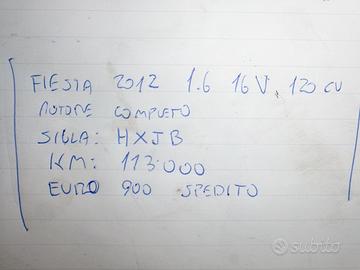 FIESTA 2012 1.6 16V. 120 CV
MOTORE COMPLETO
SIGLA: HXJB
KM: 113.000
EURO 900 SPEDITO
subito